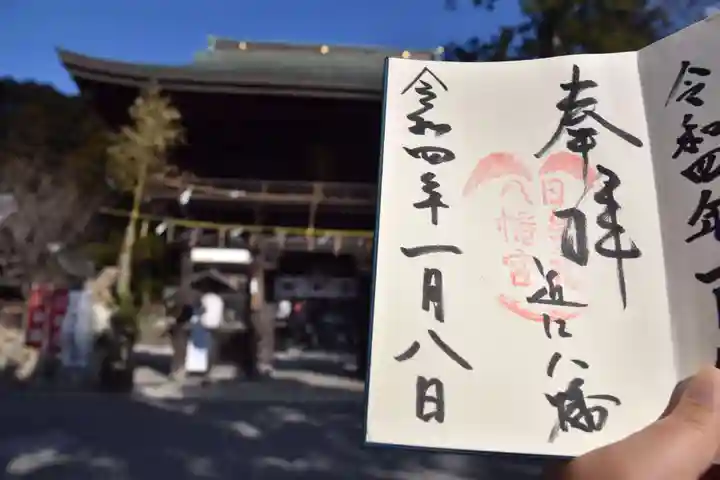 奉拝
近江八幡
日牟
八幡宮
令和四年一月八日
令和四年一月